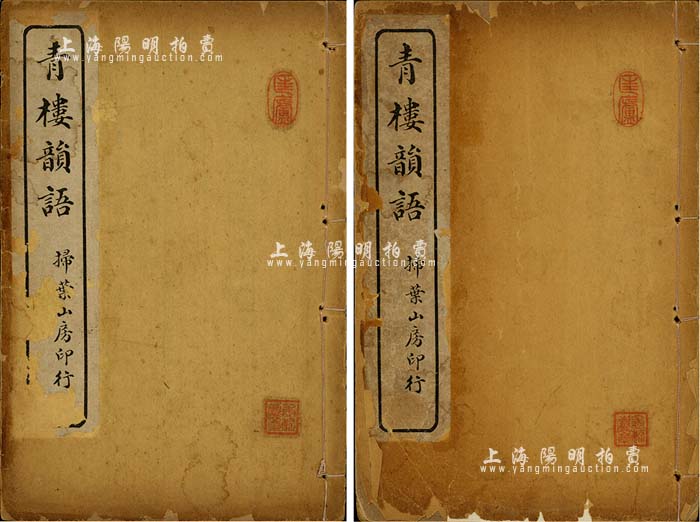 青樓韻語
掃葉山房印行
青樓韻語
掃葉山房印行
上海陽明拍賣
www.yangmingauction.com
上海陽明拍賣
www.yangmingauction.com
上海陽明拍賣
www.yangmingauction.com